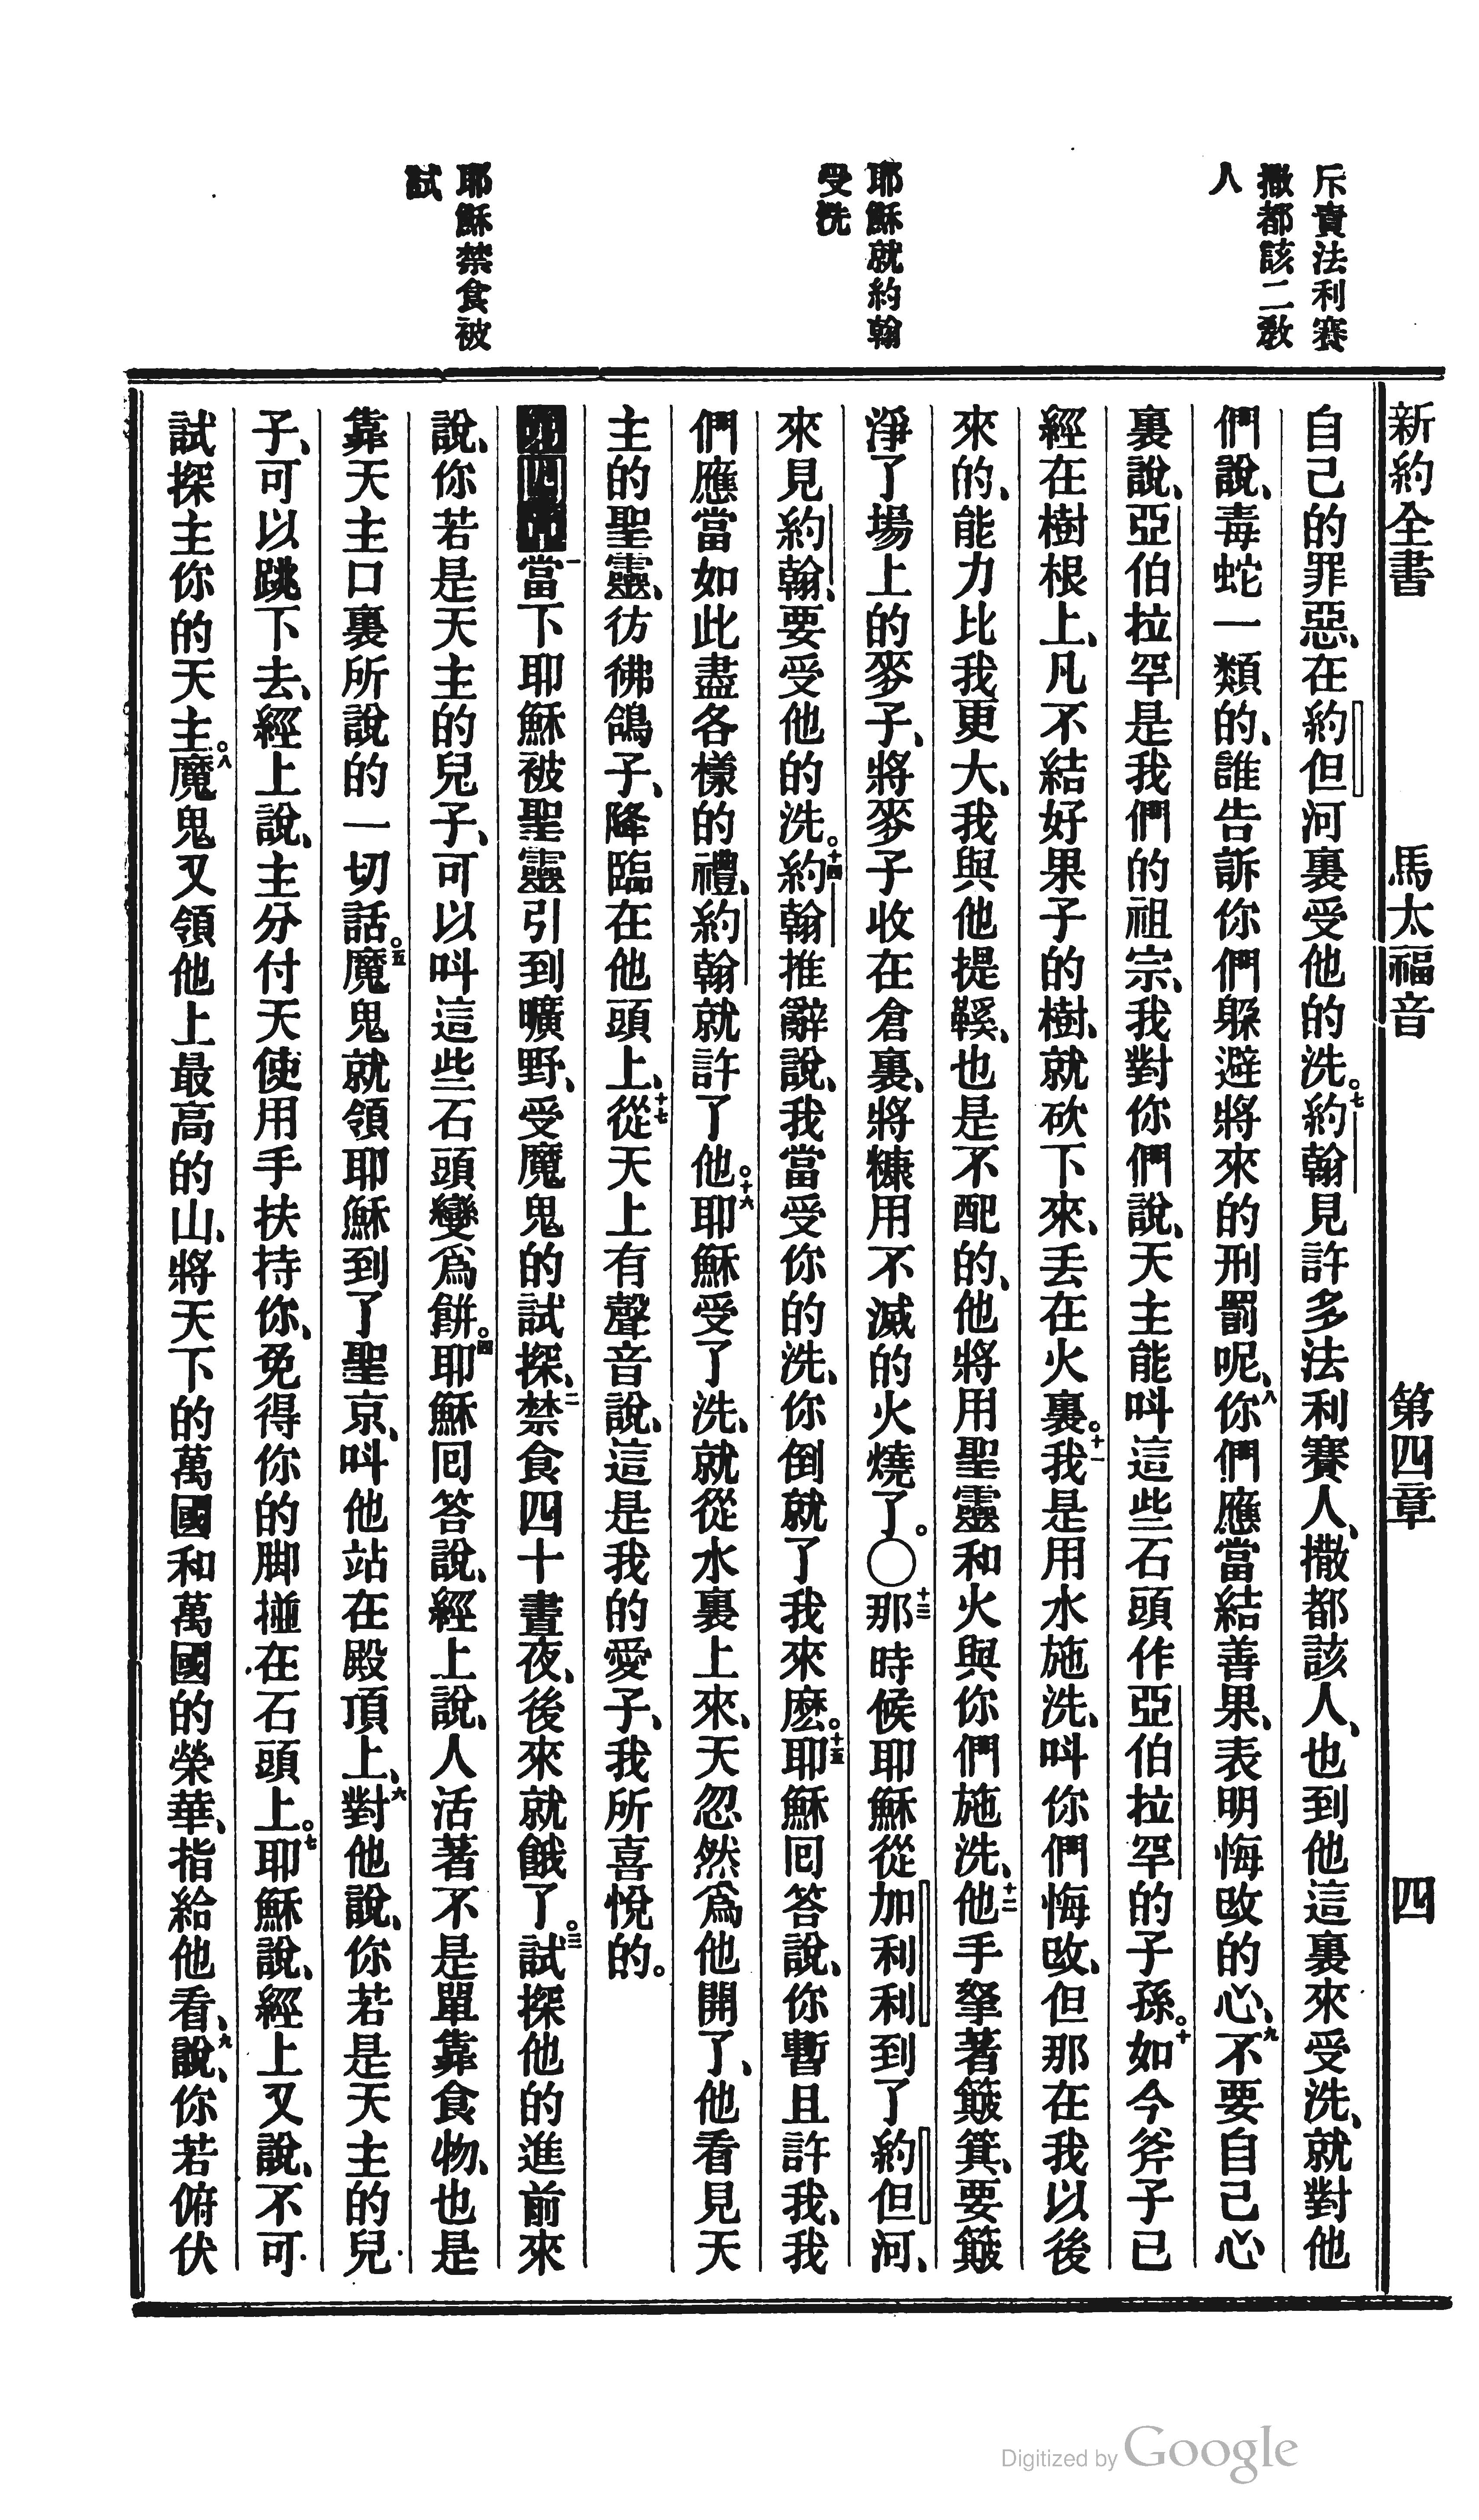 斥責法利賽
撒都該二教
人
耶穌就約翰
受洗
耶穌禁食被
試
新約全書 馬太福音 第四章 四
自己的罪惡、在約但河裏受他的洗。七約翰見許多法利賽人、撒都該人、也到他這裏來受洗、就對他
們說、毒蛇一類的、誰告訴你們躲避將來的刑罰呢、八你們應當結善果、表明悔改的心、九不要自己心
裏說、亞伯拉罕是我們的祖宗、我對你們說、天主能呌這些石頭作亞伯拉罕的子孫。十如今斧子已
經在樹根上、凡不結好果子的樹、就砍下來、丟在火裏。十一我是用水施洗、呌你們悔改、但那在我以後
來的、能力比我更大、我與他提鞵、也是不配的、他將用聖靈和火與你們施洗、十二他手拏著簸箕、要簸
淨了場上的麥子、將麥子收在倉裏、將糠用不滅的火燒了。〇十三那時候耶穌從加利利到了約但河、
來見約翰、要受他的洗。十四約翰推辭說、我當受你的洗、你倒就了我來麽。十五耶穌回答說、你暫且許我、我
們應當如此盡各樣的禮、約翰就許了他。十六耶穌受了洗、就從水裏上來、天忽然爲他開了、他看見天
主的聖靈、彷彿鴿子、降臨在他頭上、十七從天上有聲音說、這是我的愛子、我所喜悅的。
第四章一當下耶穌被聖靈引到曠野、受魔鬼的試探、二禁食四十晝夜、後來就餓了。三試探他的進前來
說、你若是天主的兒子、可以呌這些石頭變爲餅。四耶穌回答說、經上說、人活著不是單靠食物、也是
靠天主口裏所說的一切話。五魔鬼就領耶穌到了聖京、呌他站在殿頂上、六對他說、你若是天主的兒
子、可以跳下去、經上說、主分付天使用手扶持你、免得你的脚撞在石頭上。七耶穌說、經上又說、不可
試探主你的天主。八魔鬼又領他上最高的山、將天下的萬國和萬國的榮華、指給他看、九說、你若俯伏
Digitized by Google